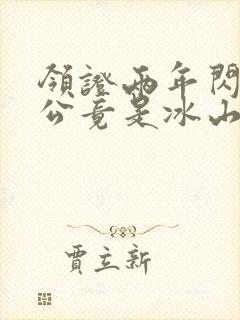 領證兩年閃
公竟是冰山
賈立新